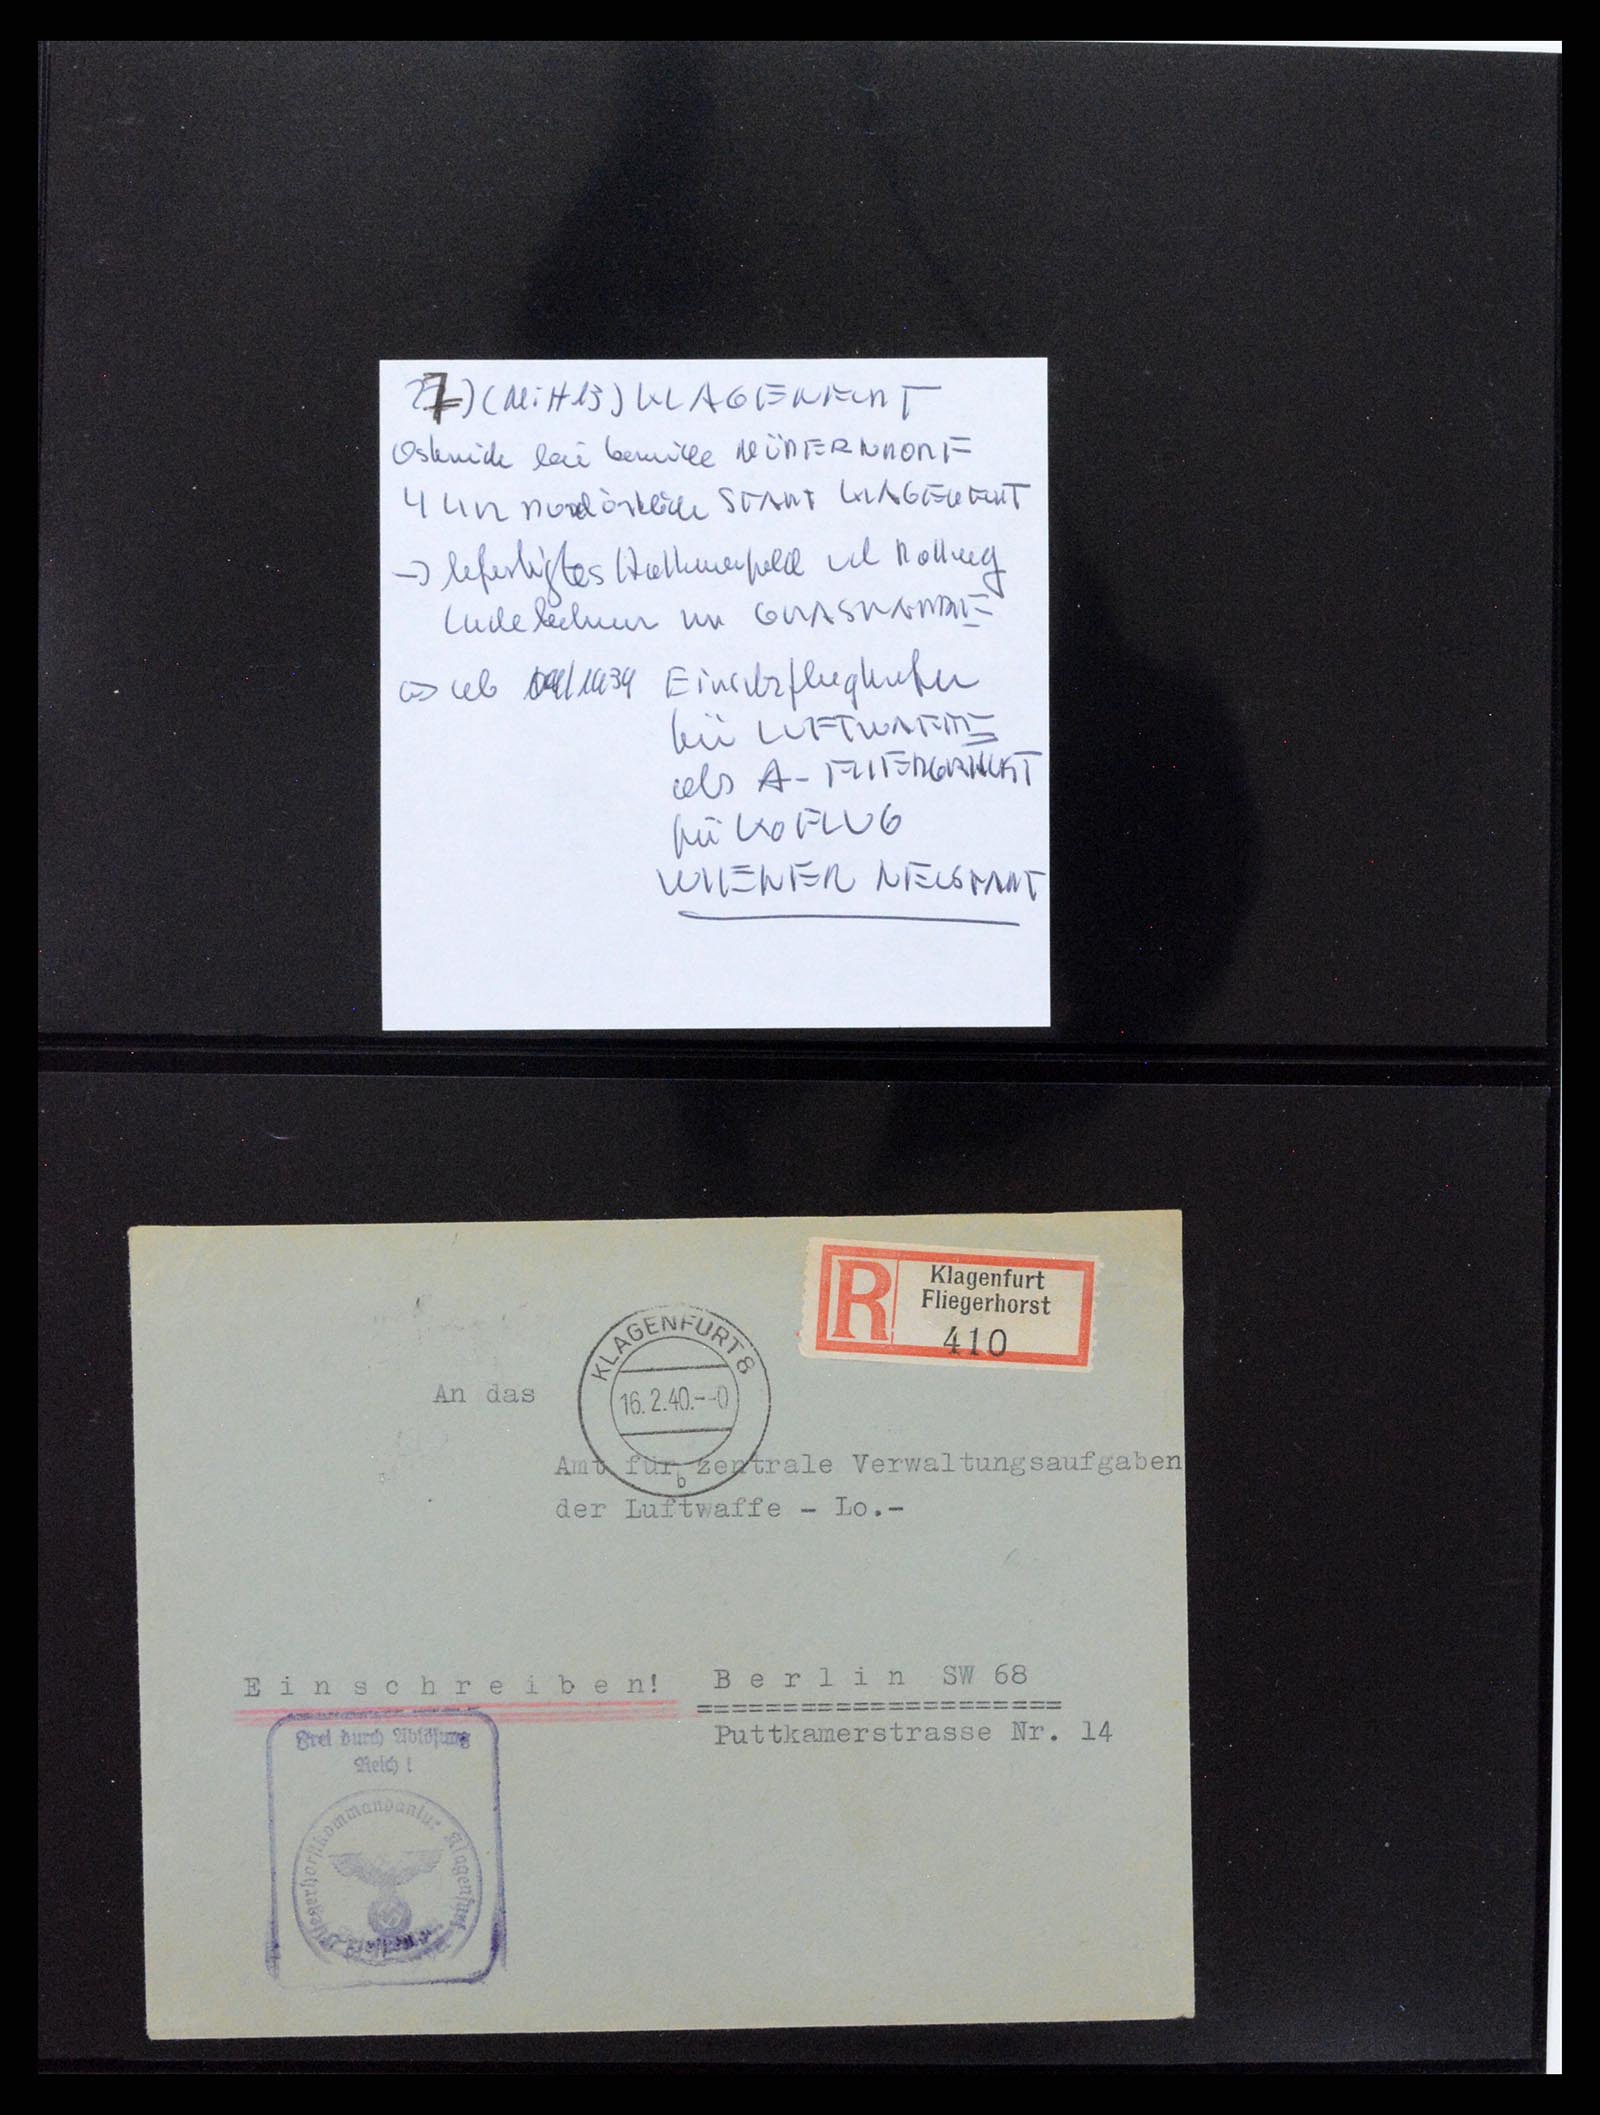 27) (           ) KLAGENFURT
bei
4 km nordöstlich STADT KLAGENFURT
→ befestigtes und Rollweg
GRASNARBE
ab 09/1939 Einsatzflughafen
für LUFTWAFFE
als A-
für KOFLUG
WIENER NEUSTADT
R
Klagenfurt
Fliegerhorst
410
KLAGENFURT 8
16.2.40.--0
b
An das
Amt für zentrale Verwaltungsaufgaben
der Luftwaffe - Lo.-
Einschreiben! Berlin SW 68
=====================
Puttkamerstrasse Nr. 14
Frei durch Ablösung
Reich!
Fliegerhorstkommandantur Klagenfurt